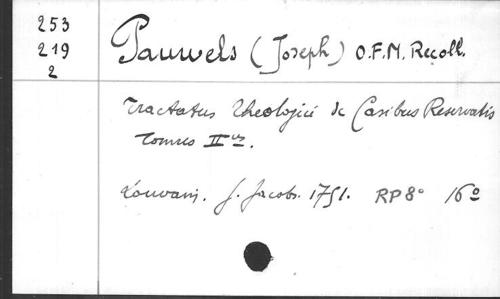 253
219
2
Pauwels (Joseph) O.F.M. Recoll.
Tractatus Theologici de Casibus Reservatis
Tomus II us.
Louvain. J. Jacobs. 1751. RP 8° 16°